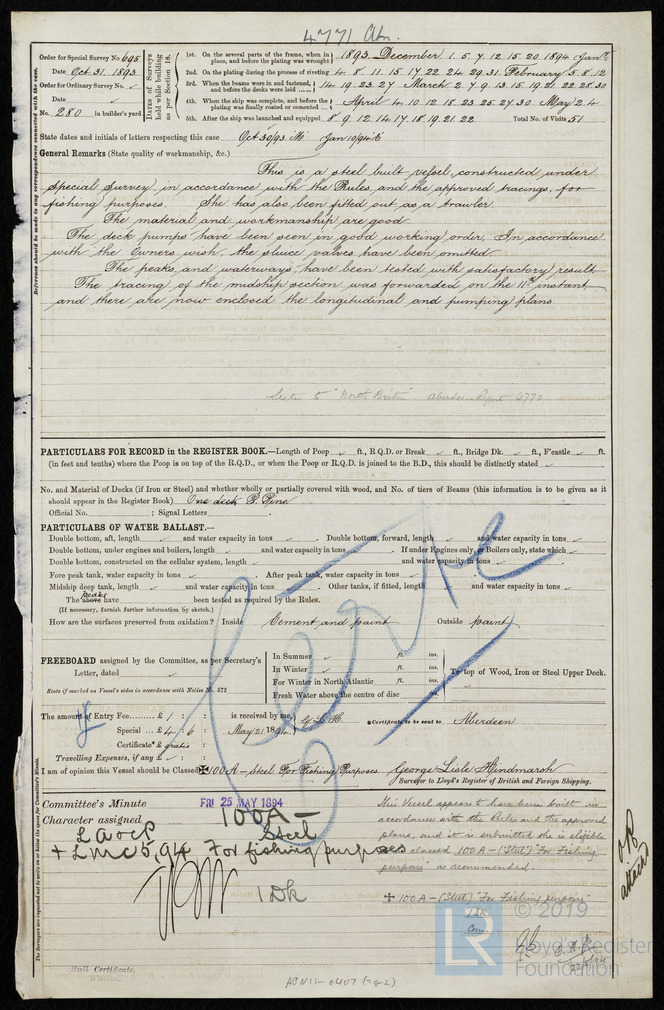 4771 Abn.
Order for Special Survey No 695
Date Oct. 31. 1893
Order for Ordinary Survey No. ✓
Date ✓
No. 280 in builder's yard.
Dates of Surveys held while building as per Section 18.
1st. On the several parts of the frame, when in place, and before the plating was wrought
2nd. On the plating during the process of riveting
3rd. When the beams were in and fastened, and before the decks were laid
4th. When the ship was complete, and before the plating was finally coated or cemented
5th. After the ship was launched and equipped
1893. December 1. 5. 7. 12. 15. 20. 1894 Jany
4. 8. 11. 15. 17. 22. 24. 29. 31. February 5. 8. 12
14. 19. 23. 27 March 2. 7. 9. 13. 15. 19. 21. 22. 28. 30
April 4. 10. 12. 18. 23. 25. 27. 30 May 2. 4
8. 9. 12. 14. 17. 18. 19. 21. 22 Total No. of Visits 51
State dates and initials of letters respecting this case Oct 30/93 M Jan 10/94
General Remarks (State quality of workmanship, &c.)
This is a steel built vessel, constructed under
special survey, in accordance with the Rules, and the approved tracings, for
fishing purposes. She has also been fitted out as a trawler.
The material and workmanship are good
The deck pumps have been seen in good working order. In accordance
with the Owners wish, the sluice valves have been omitted
The peaks and waterways, have been tested with satisfactory result
The tracing of the midship section was forwarded on the 11th instant
and there are now enclosed the longitudinal and pumping plans
Sister to "North Briton" Aberdeen Report 4770
PARTICULARS FOR RECORD in the REGISTER BOOK.—Length of Poop ✓ ft., R.Q.D. or Break ✓ ft., Bridge Dk. ✓ ft., F'castle ✓ ft.
(in feet and tenths) where the Poop is on top of the R.Q.D., or when the Poop or R.Q.D. is joined to the B.D., this should be distinctly stated ✓
No. and Material of Decks (if Iron or Steel) and whether wholly or partially covered with wood, and No. of tiers of Beams (this information is to be given as it
should appear in the Register Book) One deck P. Pine
Official No. ; Signal Letters
PARTICULARS OF WATER BALLAST.—
Double bottom, aft, length ✓ and water capacity in tons ✓ . Double bottom, forward, length ✓ and water capacity in tons ✓
Double bottom, under engines and boilers, length ✓ and water capacity in tons ✓ . If under Engines only, or Boilers only, state which ✓
Double bottom, constructed on the cellular system, length ✓ and water capacity in tons ✓
Fore peak tank, water capacity in tons ✓ . After peak tank, water capacity in tons ✓
Midship deep tank, length ✓ and water capacity in tons ✓ . Other tanks, if fitted, length ✓ and water capacity in tons ✓
The above have been tested as required by the Rules.
(If necessary, furnish further information by sketch.)
How are the surfaces preserved from oxidation? Inside Cement and paint Outside paint
FREEBOARD assigned by the Committee, as per Secretary's
Letter, dated ✓
State if marked on Vessel's sides in accordance with Notice No. 672
In Summer ✓ ft. ins.
In Winter ✓ ft. ins.
For Winter in North Atlantic ft. ins.
Fresh Water above the centre of disc ins.
To top of Wood, Iron or Steel Upper Deck.
The amount of Entry Fee £ 1 : : is received by me, G. L. H.
Special £ 4 : 6 : May 21 1894
Certificate* £ gratis
Travelling Expenses, if any £ ✓
* Certificate to be sent to Aberdeen
I am of opinion this Vessel should be Classed ✠100A – Steel For Fishing Purposes George Lisle Hindmarsh
Surveyor to Lloyd's Register of British and Foreign Shipping.
Committee's Minute FRI 25 MAY 1894
Character assigned 100A –
Steel
L A & C P
+ LMC 5,94 For fishing purposes
1 Dk
This Vessel appears to have been built in
accordance with the Rules and the approved
plans, and it is submitted she is eligible
classed 100A – (Steel) "For Fishing
purposes" as recommended.
✠ 100A – (Steel) "For Fishing purposes"
1 Dk
Cem.
Hull Certificate.
ABN11-0407 (2-2)
© 2019
LR Lloyd's Register
Foundation